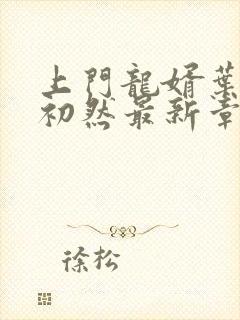 上門龍婿葉
初然最新章
徐松